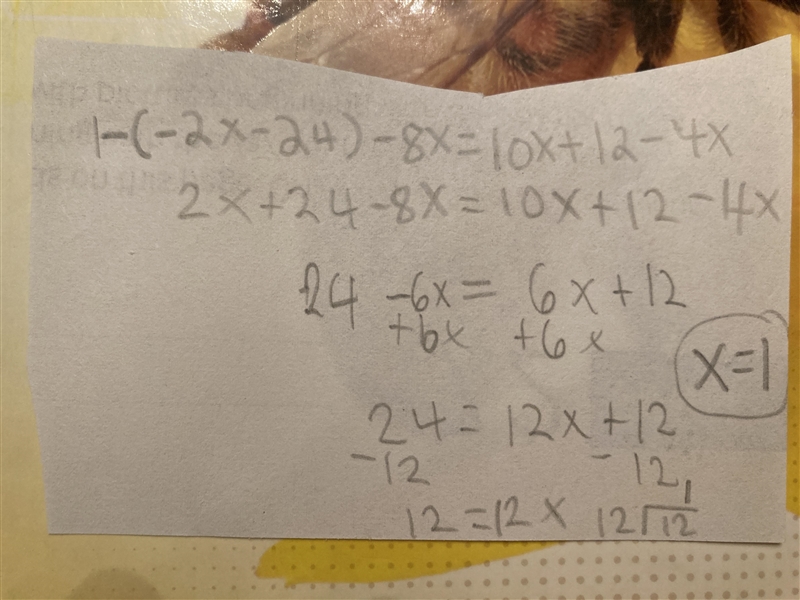 1-(-2x-24)-8x=10x+12-4x
2x+24-8x=10x+12-4x
24 -6x= 6x+12
+6x +6x
x=1
24=12x+12
-12 -12
1
12=12x 12√12